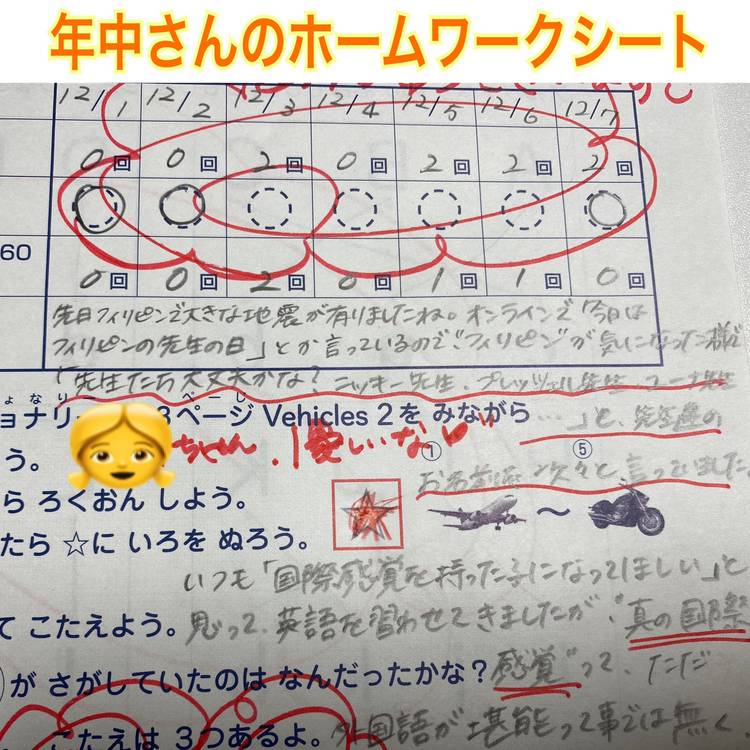 年中さんのホームワークシート
12/1 12/2 12/3 12/4 12/5 12/6 12/7
0回 0回 2回 0回 2回 2回 2回
60
0回 0回 2回 0回 1回 1回 0回
先日フィリピンで大きな地震が有りましたね。オンラインで「今日は
フィリピンの先生の日」とか言っているので、"フィリピン"が気になった様で
「先生たち大丈夫かな？ニッキー先生、プレッツェル先生、ユーナ先生
ョナリー 3ページ Vehicles 2を みながら
……」と、先生達の
う。
ちゃん、優しいな♥
① ⑤
お名前を次々と言ってました
ら ろくおん しよう。
たら ☆に いろを ぬろう。
～
いつも「国際感覚を持った子になってほしい」と
て こたえよう。
思って、英語を習わせてきましたが、"真の国際
が さがしていたのは なんだったかな？
感覚"って、ただ
こたえは 3つあるよ。
外国語が堪能って事では無く